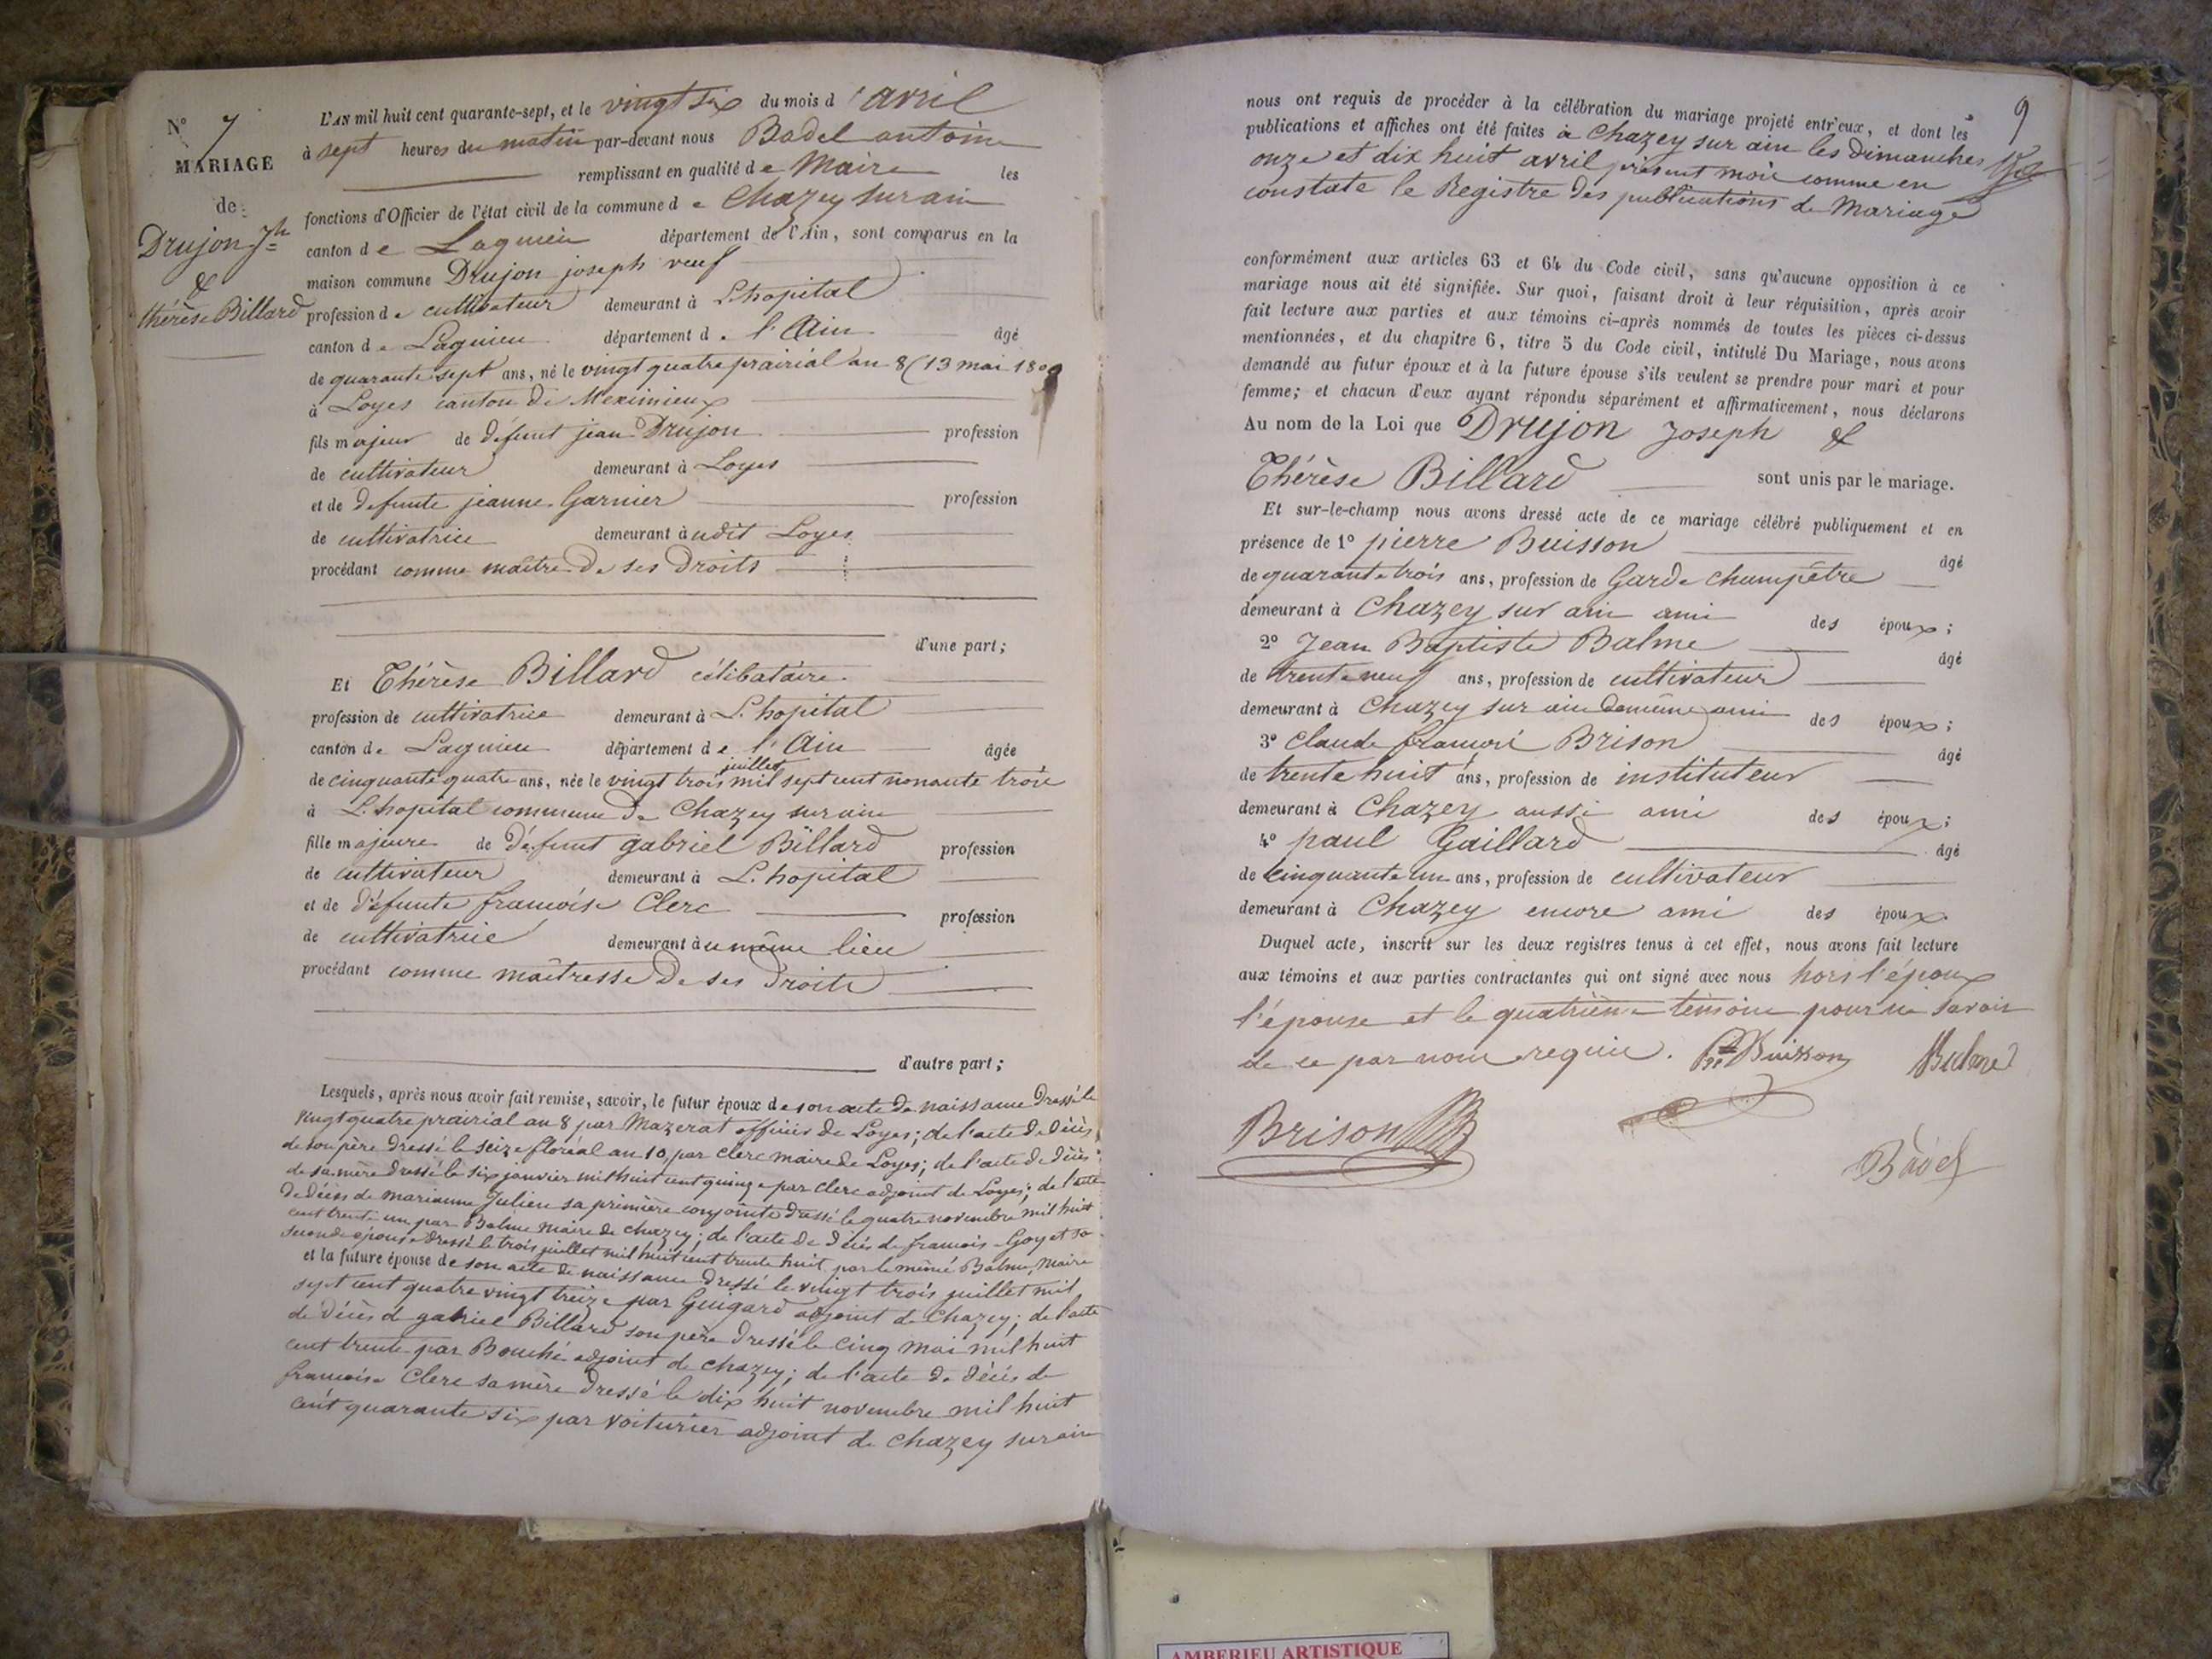 N° 7
MARIAGE
de
Drujon Jh
&
thérèse Billard
L'AN mil huit cent quarante-sept, et le vingt six du mois d'avril
à sept heures du matin par-devant nous Badel antoine
remplissant en qualité de Maire les
fonctions d'Officier de l'état civil de la commune de Chazey sur ain
canton de Lagnieu département de l'Ain, sont comparus en la
maison commune Drujon joseph veuf
profession de cultivateur demeurant à L'hopital
canton de Lagnieu département de l'Ain âgé
de quarante sept ans, né le vingt quatre prairial an 8 (13 mai 1800
à Loyes canton de Meximieux
fils majeur de défunt jean Drujon profession
de cultivateur demeurant à Loyes
et de defunte jeanne Garnier profession
de cultivatrice demeurant audit Loyes
procédant comme maitre de ses droits
d'une part;
Et Thérèse Billard célibataire
profession de cultivatrice demeurant à L'hopital
canton de Lagnieu département de l'Ain âgée
juillet
de cinquante quatre ans, née le vingt trois mil sept cent nonante trois
à L'hopital commune de Chazey sur ain
fille majeure de défunt gabriel Billard profession
de cultivateur demeurant à L'hopital
et de défunte francoise Clerc profession
de cultivatrice demeurant au même lieu
procédant comme maitresse de ses droits
d'autre part;
Lesquels, après nous avoir fait remise, savoir, le futur époux de son acte de naissance dressé le
vingt quatre prairial an 8 par Mazerat officier de Loyes; de l'acte de décès
de son père dressé le seize floréal an 10, par clerc maire de Loyes; de l'acte de décès
de sa mère dressé le six janvier mil huit cent quinze par clerc adjoint de Loyes; de l'acte
de décès de marianne Julien sa première conjointe dressé le quatre novembre mil huit
cent trente un par Balme maire de chazey; de l'acte de décès de francois Goyet sa
seconde épouse dressé le trois juillet mil huit cent trente huit par le même Balme, Maire
et la future épouse de son acte de naissance dressé le vingt trois juillet mil
sept cent quatre vingt treize par Guigard adjoint de Chazey; de l'acte
de décès de gabriel Billard son père dressé le cinq mai mil huit
cent trente par Bouché adjoint de chazey; de l'acte de décès de
francoise Clerc sa mère dressé le dix huit novembre mil huit
cent quarante six par voiturier adjoint de chazey sur ain
9
nous ont requis de procéder à la célébration du mariage projeté entr'eux, et dont les
publications et affiches ont été faites à Chazey sur ain les dimanches
onze et dix huit avril présent mois comme en
constate le Registre des publications de Mariage
conformément aux articles 63 et 64 du Code civil, sans qu'aucune opposition à ce
mariage nous ait été signifiée. Sur quoi, faisant droit à leur réquisition, après avoir
fait lecture aux parties et aux témoins ci-après nommés de toutes les pièces ci-dessus
mentionnées, et du chapitre 6, titre 5 du Code civil, intitulé Du Mariage, nous avons
demandé au futur époux et à la future épouse s'ils veulent se prendre pour mari et pour
femme; et chacun d'eux ayant répondu séparément et affirmativement, nous déclarons
Au nom de la Loi que Drujon Joseph &
Thérèse Billard sont unis par le mariage.
Et sur-le-champ nous avons dressé acte de ce mariage célébré publiquement et en
présence de 1° pierre Buisson âgé
de quarante trois ans, profession de Garde champêtre
demeurant à Chazey sur ain ami des époux;
2° Jean Baptiste Balme âgé
de trente neuf ans, profession de cultivateur
demeurant à Chazey sur ain demême ami des époux;
3° Claude francois Brison âgé
de trente huit ans, profession de instituteur
demeurant à Chazey aussi ami des époux;
4° paul Gaillard âgé
de cinquante un ans, profession de cultivateur
demeurant à Chazey encore ami des époux.
Duquel acte, inscrit sur les deux registres tenus à cet effet, nous avons fait lecture
aux témoins et aux parties contractantes qui ont signé avec nous hors l'époux
l'épouse et le quatrième témoin pour ne savoir
de ce par nous requis. Pre Buisson Balme
Brison
Badel
AMBERIEU ARTISTIQUE